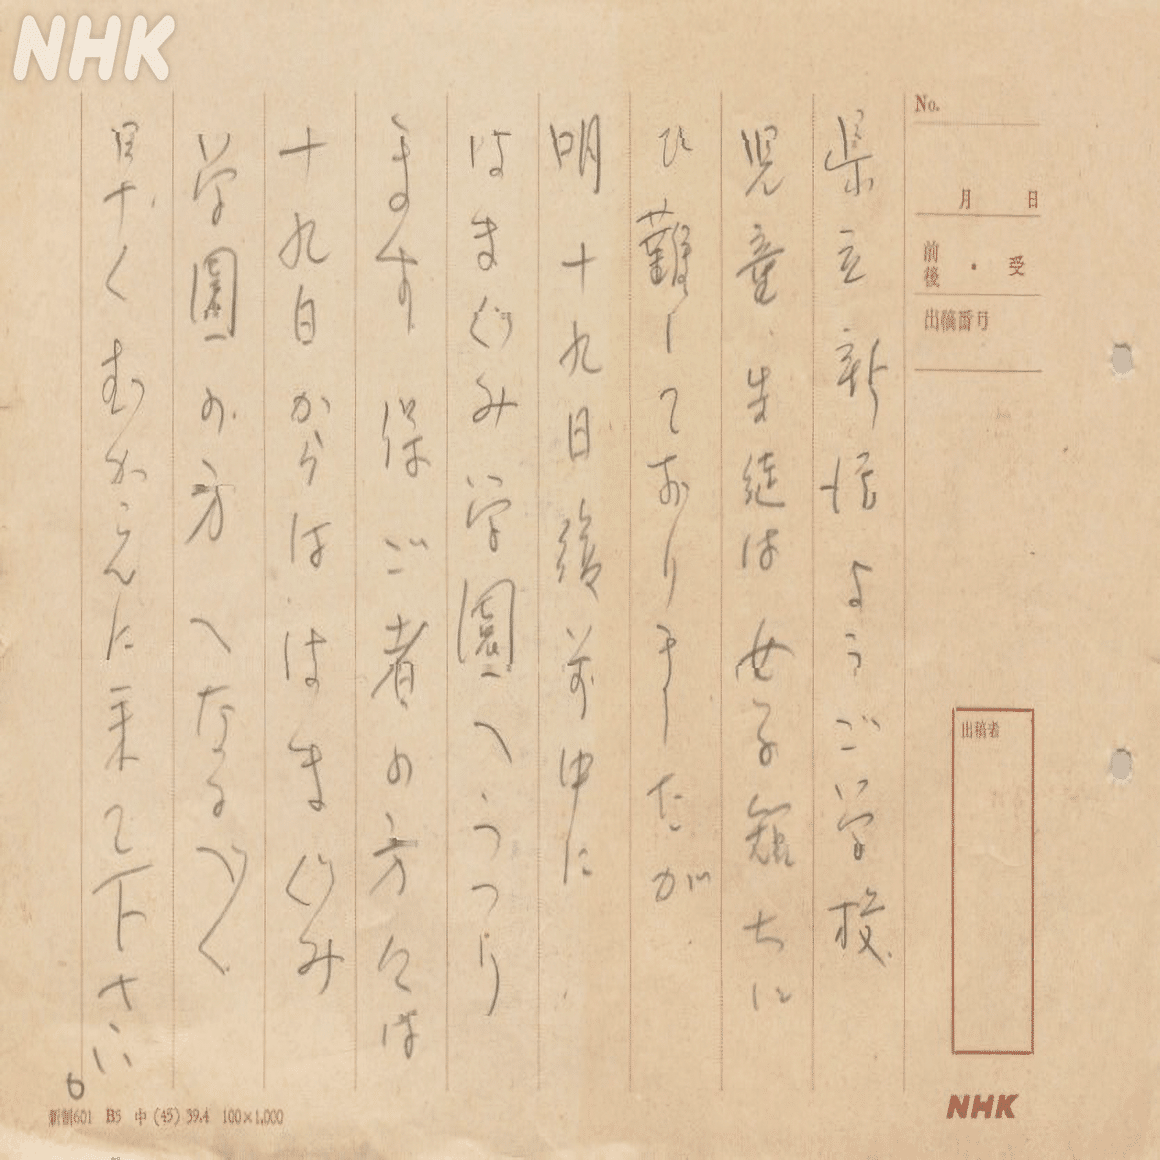 NHK
No.
月 日
前後・受
出稿番号
出稿者
県立新潟ようご学校
児童、生徒は女子短大に
ひ難しておりましたが
明十九日後前中に
はまぐみ学園へうつり
ます 保ご者の方々は
十九日からははまぐみ
学園の方へなるべく
早くむかえに来て下さい
6
新制601 B5 中 (45) 39.4 100×1,000
NHK